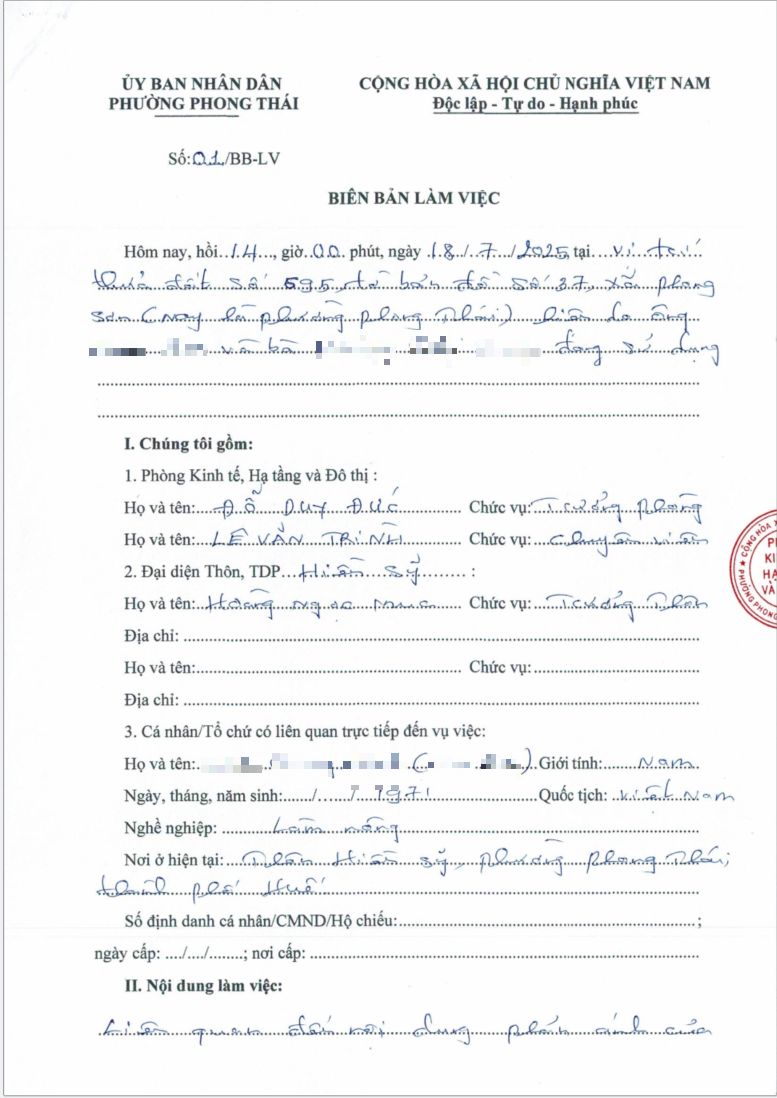 ỦY BAN NHÂN DÂN
PHƯỜNG PHONG THÁI
CỘNG HÒA XÃ HỘI CHỦ NGHĨA VIỆT NAM
Độc lập - Tự do - Hạnh phúc
Số: 01/BB-LV
BIÊN BẢN LÀM VIỆC
Hôm nay, hồi 14, giờ 00 phút, ngày 18/7/2025, tại vị trí
thửa đất số 695, tờ bản đồ số 37, xã Phong
Sơn (nay là phường Phong Thái) hiện do ông
và bà đang sử dụng
I. Chúng tôi gồm:
1. Phòng Kinh tế, Hạ tầng và Đô thị :
Họ và tên: ĐỖ DUY ĐỨC Chức vụ: Trưởng phòng
Họ và tên: LÊ VĂN TRINH Chức vụ: Chuyên viên
2. Đại diện Thôn, TDP Hiền Sỹ :
Họ và tên: Hoàng Ngọc Chức vụ: Trưởng Thôn
Địa chỉ:
Họ và tên: Chức vụ:
Địa chỉ:
3. Cá nhân/Tổ chứ có liên quan trực tiếp đến vụ việc:
Họ và tên: Giới tính: Nam
Ngày, tháng, năm sinh: / / 1971 Quốc tịch: Việt Nam
Nghề nghiệp: Làm nông
Nơi ở hiện tại: Thôn Hiền Sỹ, phường Phong Thái,
thành phố Huế
Số định danh cá nhân/CMND/Hộ chiếu: ;
ngày cấp: / / ; nơi cấp:
II. Nội dung làm việc:
Liên quan đến nội dung phản ánh của